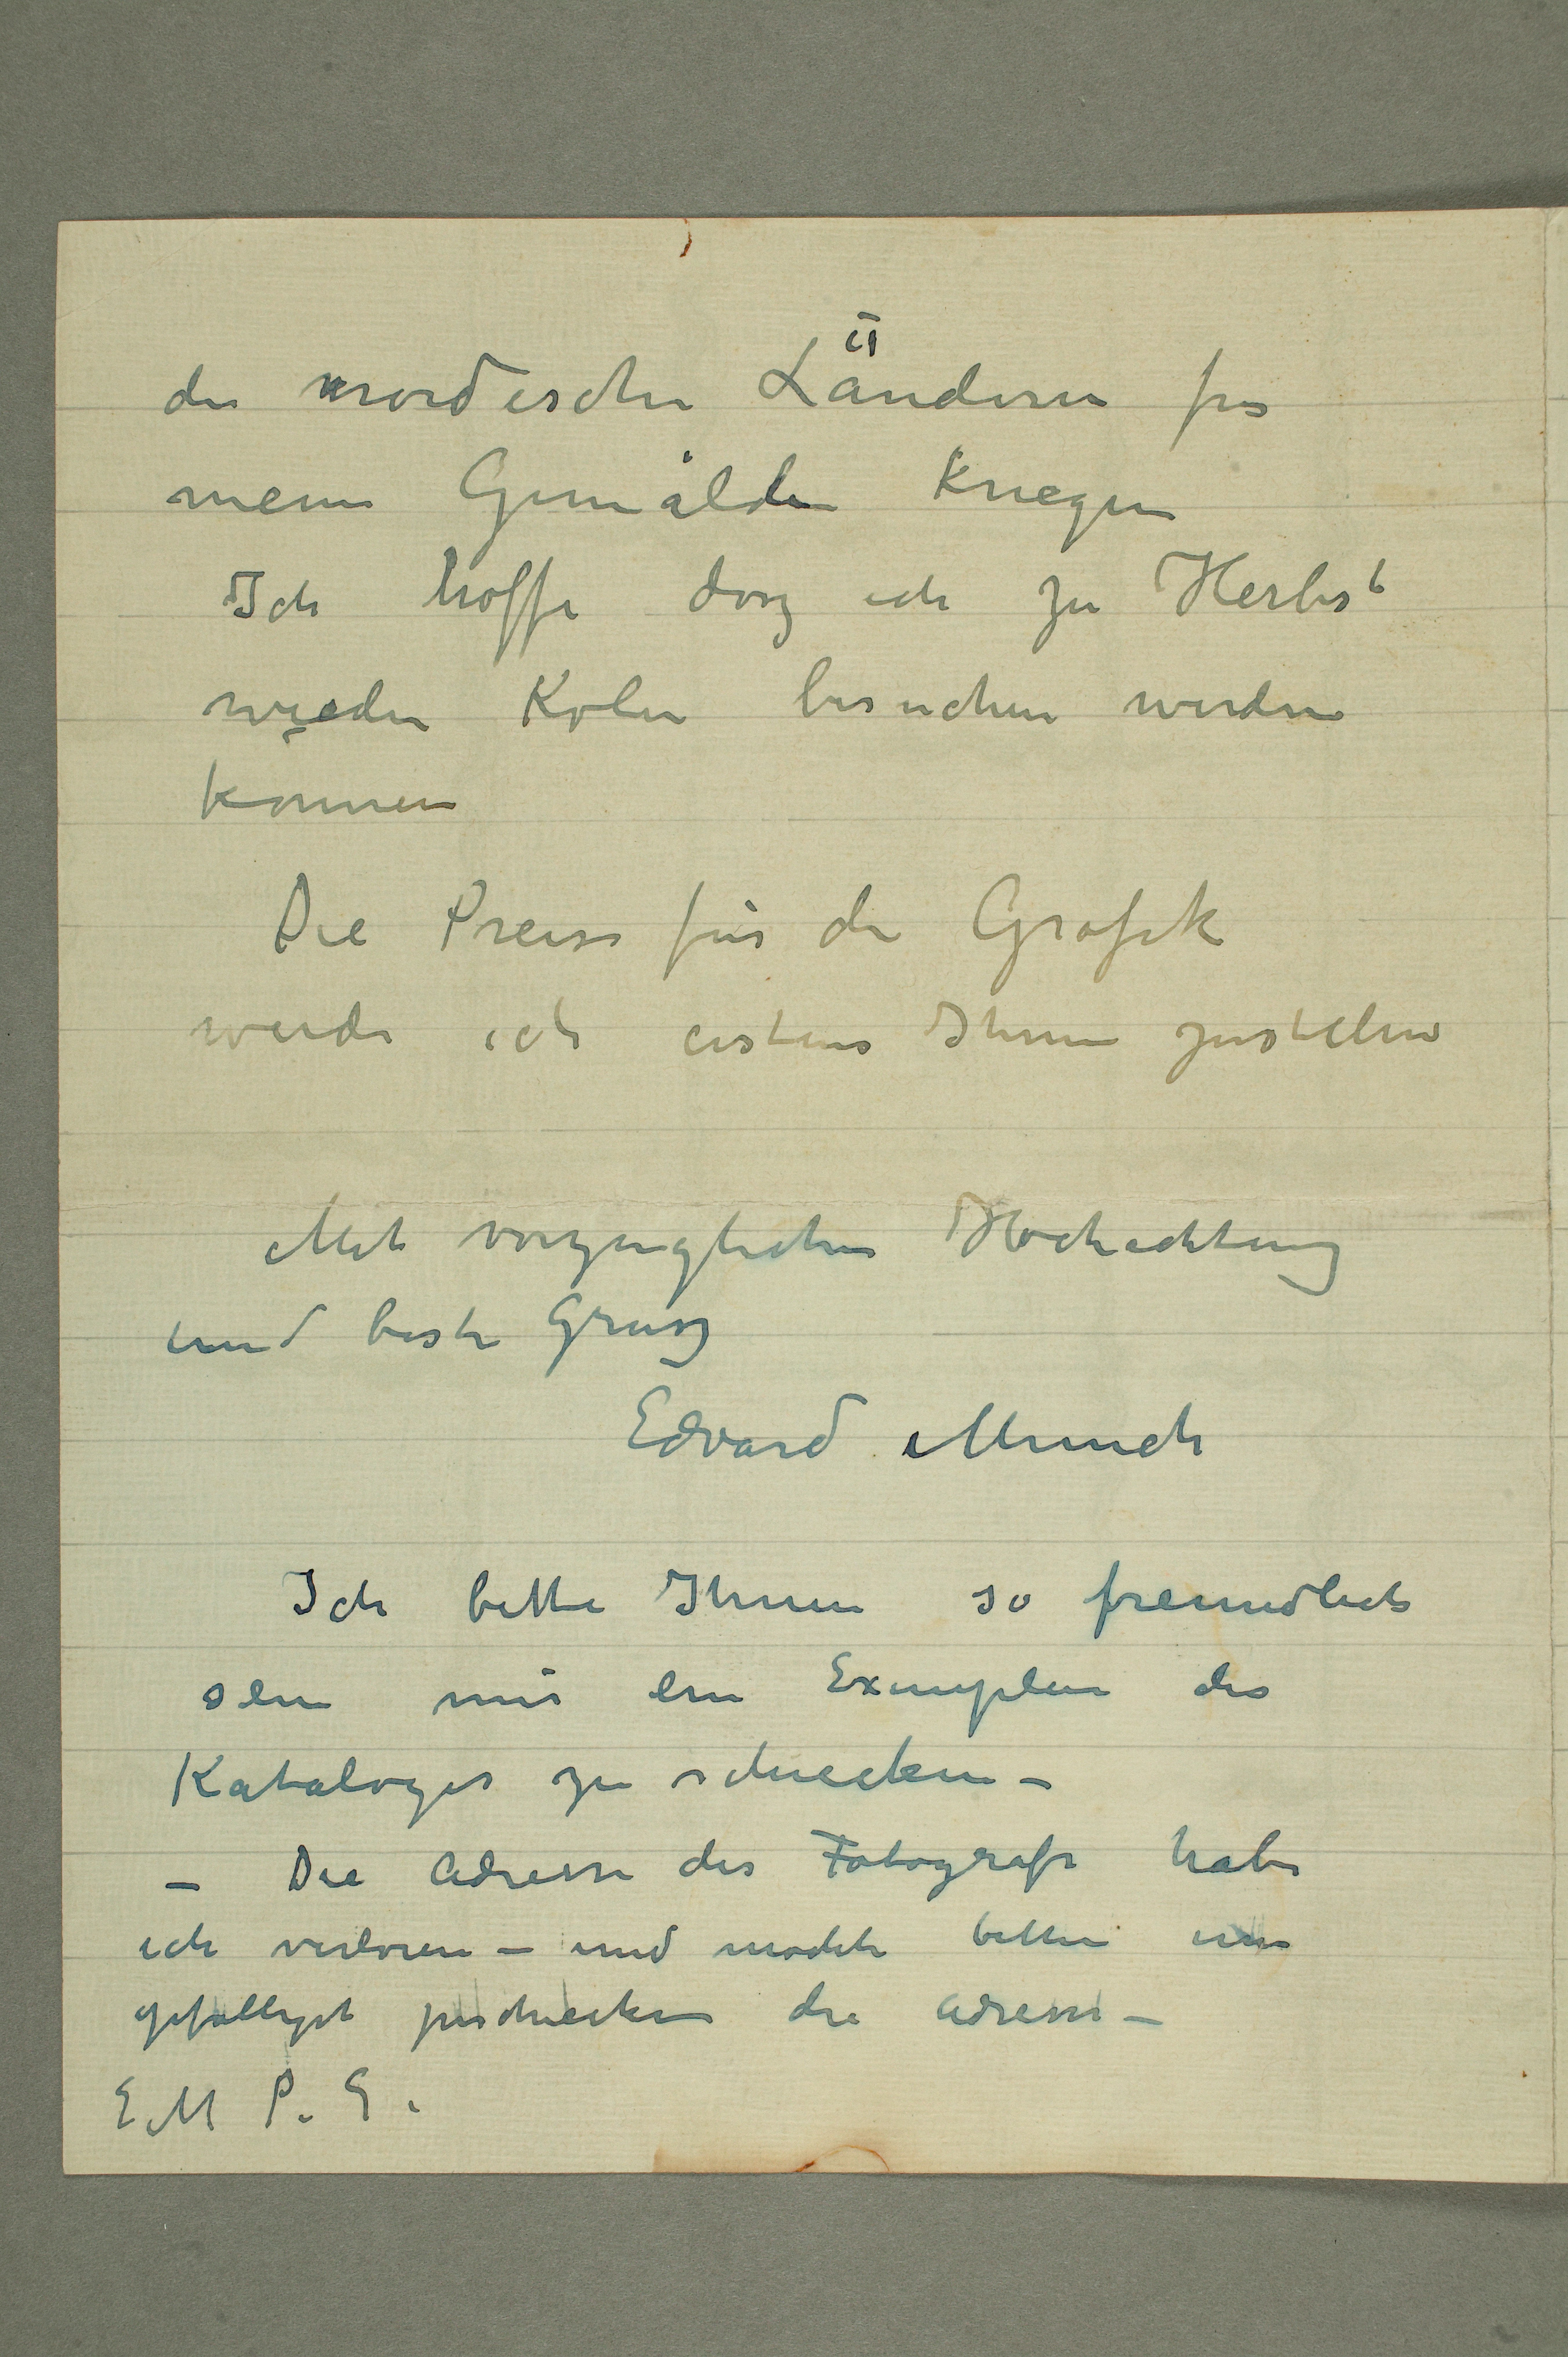 der nordischen Ländern für
meine Gemälden kriegen
Ich hoffe dasz ich zu Herbst
wieder Koln besuchen werden
können
Die Preise für die Grafik
werde ich erstens Ihnen zustellen
Mit vorzuglichen Hochachtung
und beste Grusz
Edvard Munch
Ich bitte Ihnen so freundlich
sein mir ein Exemplar des
Kataloges zu schicken –
– Die Adresse des Fotografs habe
ich verloren – und mochte bitten um
gefalligst zuschicken die Adresse –
EM P. S.